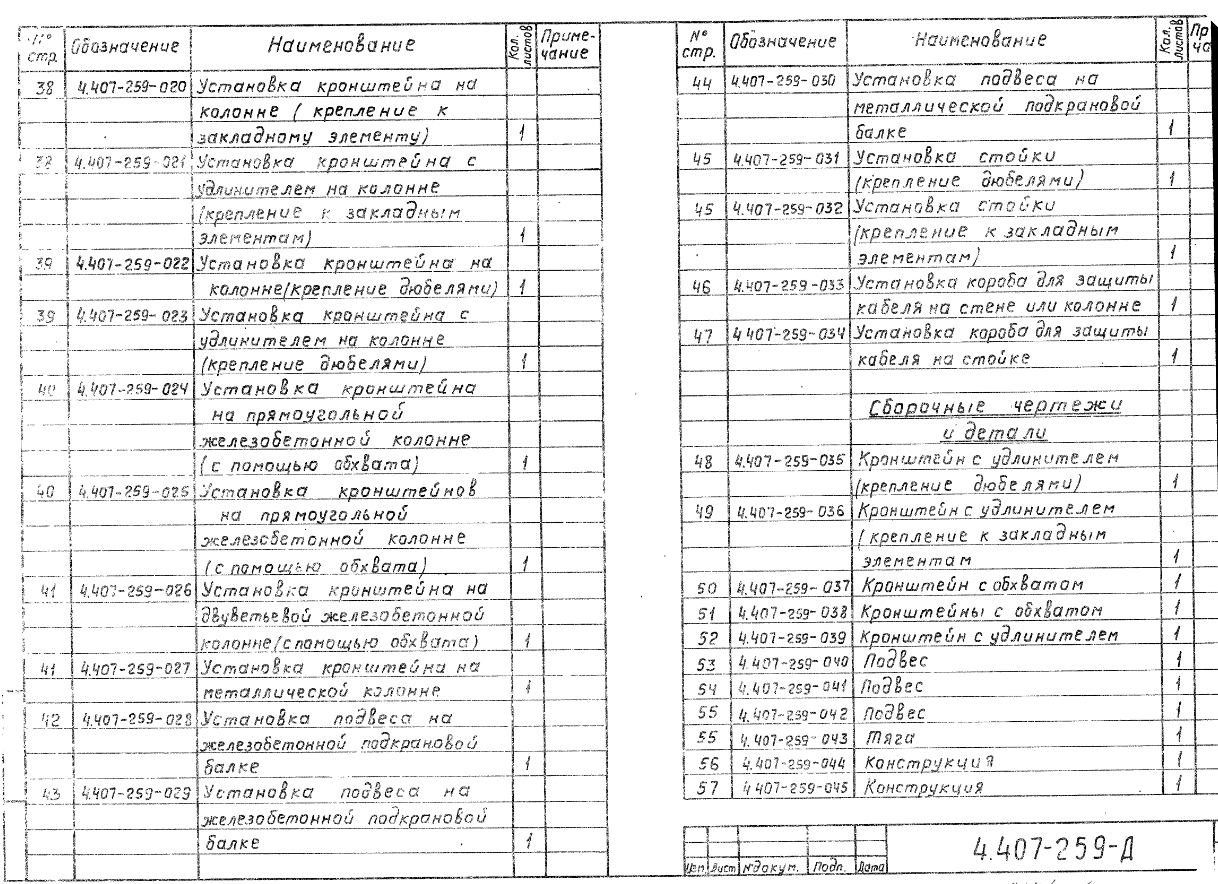 № стр. Обозначение Наименование Кол. листов Примечание
38 4.407-259-020 Установка кронштейна на
колонне (крепление к
закладному элементу) 1
38 4.407-259-021 Установка кронштейна с
удлинителем на колонне
(крепление к закладным
элементам) 1
39 4.407-259-022 Установка кронштейна на
колонне (крепление дюбелями) 1
39 4.407-259-023 Установка кронштейна с
удлинителем на колонне
(крепление дюбелями) 1
40 4.407-259-024 Установка кронштейна
на прямоугольной
железобетонной колонне
(с помощью обхвата) 1
40 4.407-259-025 Установка кронштейнов
на прямоугольной
железобетонной колонне
(с помощью обхвата) 1
41 4.407-259-026 Установка кронштейна на
двуветьевой железобетонной
колонне (с помощью обхвата) 1
41 4.407-259-027 Установка кронштейна на
металлической колонне 1
42 4.407-259-028 Установка подвеса на
железобетонной подкрановой
балке 1
43 4.407-259-029 Установка подвеса на
железобетонной подкрановой
балке 1
№ стр. Обозначение Наименование Кол. листов Пр ча
44 4.407-259-030 Установка подвеса на
металлической подкрановой
балке 1
45 4.407-259-031 Установка стойки
(крепление дюбелями) 1
45 4.407-259-032 Установка стойки
(крепление к закладным
элементам) 1
46 4.407-259-033 Установка короба для защиты
кабеля на стене или колонне 1
47 4.407-259-034 Установка короба для защиты
кабеля на стойке 1
Сборочные чертежи
и детали
48 4.407-259-035 Кронштейн с удлинителем
(крепление дюбелями) 1
49 4.407-259-036 Кронштейн с удлинителем
(крепление к закладным
элементам 1
50 4.407-259-037 Кронштейн с обхватом 1
51 4.407-259-038 Кронштейны с обхватом 1
52 4.407-259-039 Кронштейн с удлинителем 1
53 4.407-259-040 Подвес 1
54 4.407-259-041 Подвес 1
55 4.407-259-042 Подвес 1
55 4.407-259-043 Тяга 1
56 4.407-259-044 Конструкция 1
57 4.407-259-045 Конструкция 1
4.407-259-Д
Изм Лист № докум. Подп. Дата